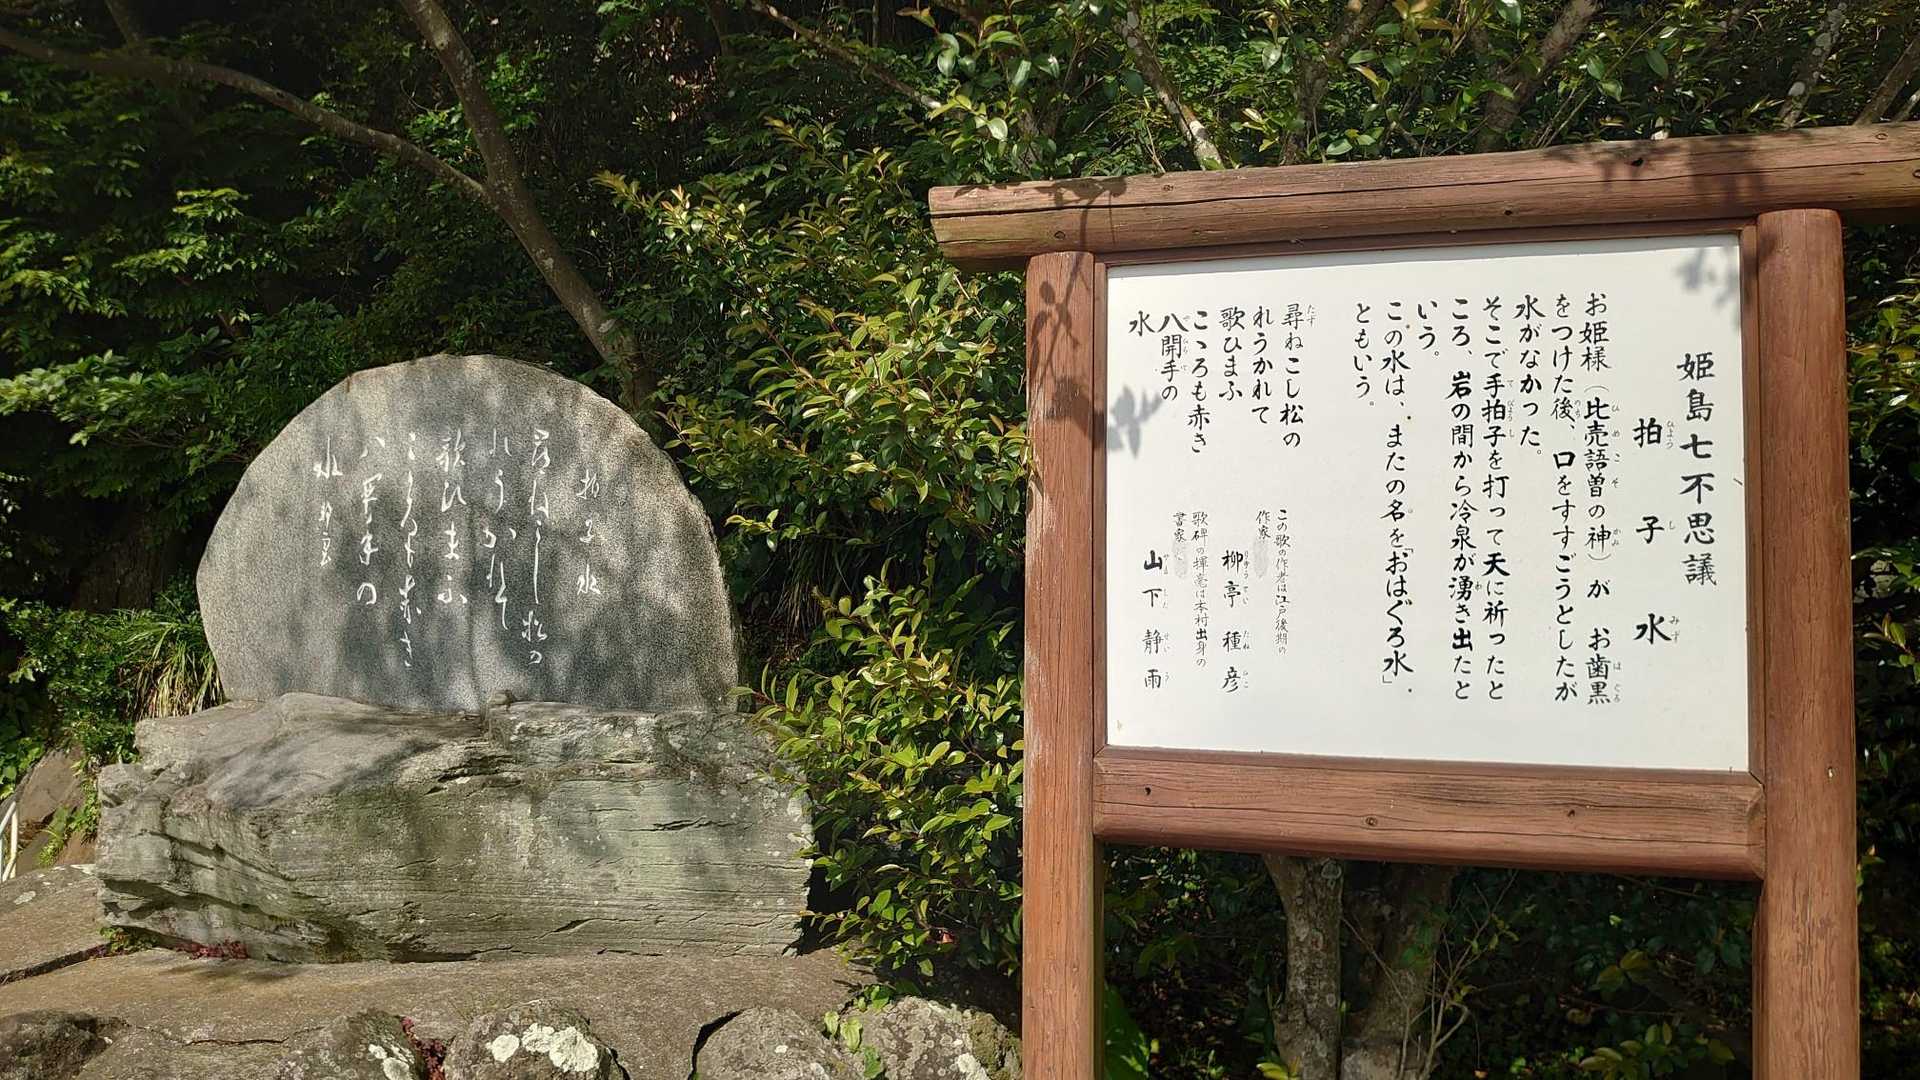 姫島七不思議
拍子水
お姫様（比売語曽の神）が お歯黒
をつけた後、口をすすごうとしたが
水がなかった。
そこで手拍子を打って天に祈ったと
ころ、岩の間から冷泉が湧き出たと
いう。
この水は、またの名を「おはぐろ水」
ともいう。
尋ねこし松の
れうかれて
歌ひまふ
こゝろも赤き
八開手の
水
この歌の作者は江戸後期の
作家
柳亭種彦
歌碑の揮毫は本村出身の
書家
山下静雨
拍子水
尋ねこし松の
れうかれて
歌ひまふ
こゝろも赤き
八開手の
水